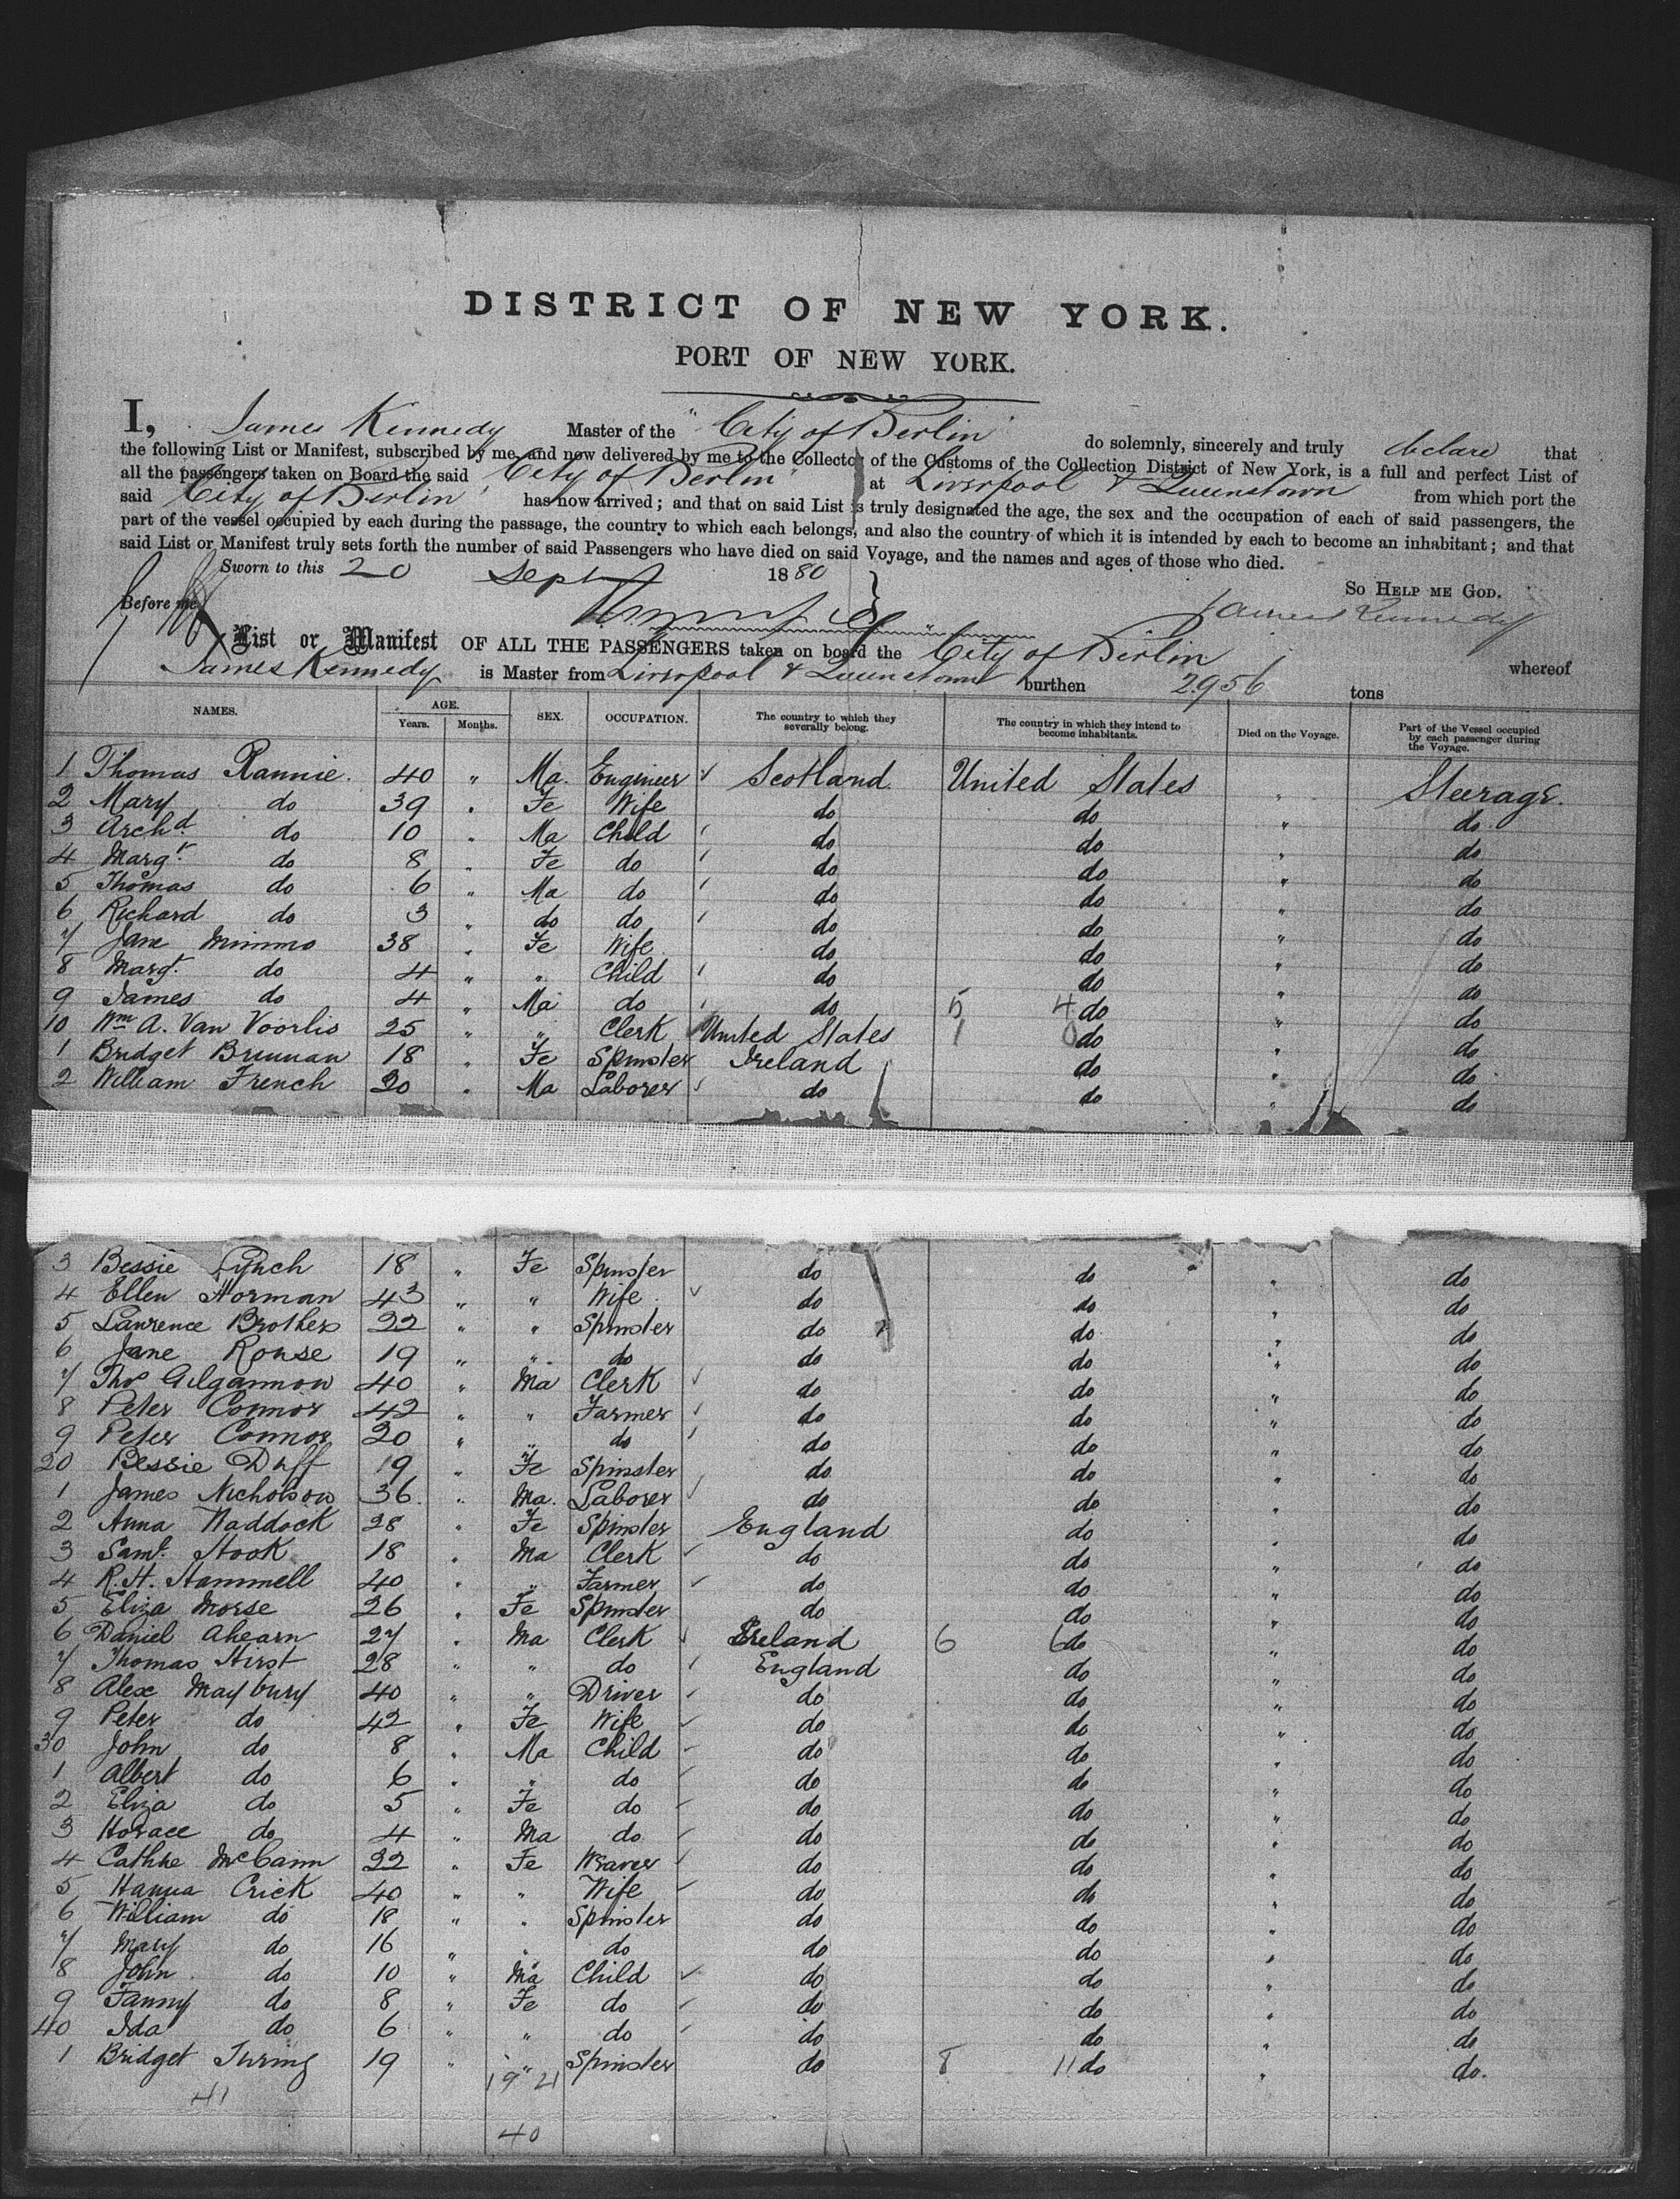 DISTRICT OF NEW YORK.
PORT OF NEW YORK.
I, James Kennedy Master of the "City of Berlin" do solemnly, sincerely and truly declare that
the following List or Manifest, subscribed by me, and now delivered by me to the Collector of the Customs of the Collection District of New York, is a full and perfect List of
all the passengers taken on Board the said City of Berlin at Liverpool & Queenstown from which port the
said City of Berlin has now arrived; and that on said List is truly designated the age, the sex and the occupation of each of said passengers, the
part of the vessel occupied by each during the passage, the country to which each belongs, and also the country of which it is intended by each to become an inhabitant; and that
said List or Manifest truly sets forth the number of said Passengers who have died on said Voyage, and the names and ages of those who died.
Sworn to this 20 Sept 1880 So HELP ME GOD.
Before me James Kennedy
List or Manifest OF ALL THE PASSENGERS taken on board the City of Berlin whereof
James Kennedy is Master from Liverpool & Queenstown burthen 2956 tons
NAMES. AGE. Years. Months. SEX. OCCUPATION. The country to which they severally belong. The country in which they intend to become inhabitants. Died on the Voyage. Part of the Vessel occupied by each passenger during the Voyage.
1 Thomas Rannie. 40 " Ma. Engineer Scotland United States " Steerage.
2 Mary do 39 " Fe Wife do do " do
3 Archd. do 10 " Ma Child do do " do
4 Margt. do 8 " Fe do do do " do
5 Thomas do 6 " Ma do do do " do
6 Richard do 3 " do do do do " do
7 Jane Mimmo 38 " Fe Wife do do " do
8 Margt. do 4 " " Child do do " do
9 James do 4 " Ma do do 5 4 do " do
10 Wm A. Van Voorlis 25 " " Clerk United States 1 0 do " do
1 Bridget Brennan 18 " Fe Spinster Ireland do " do
2 William French 20 " Ma Laborer do do " do
3 Bessie Lynch 18 " Fe Spinster do do " do
4 Ellen Horman 43 " " Wife do do " do
5 Lawrence Brothers 22 " " Spinster do do " do
6 Jane Rouse 19 " " do do do " do
7 Thos Gilgannon 40 " Ma Clerk do do " do
8 Peter Connor 42 " " Farmer do do " do
9 Peter Connor 20 " " do do do " do
20 Bessie Duff 19 " Fe Spinster do do " do
1 James Nicholson 36 " Ma. Laborer do do " do
2 Anna Haddock 28 " Fe Spinster England do " do
3 Saml. Hook 18 " Ma Clerk do do " do
4 R. H. Hammell 40 " " Farmer do do " do
5 Eliza Morse 26 " Fe Spinster do do " do
6 Daniel Ahearn 27 " Ma Clerk Ireland 6 6 do " do
7 Thomas Hirst 28 " " do England do " do
8 Alex Maybury 40 " " Driver do do " do
9 Peter do 42 " Fe Wife do do " do
30 John do 8 " Ma Child do do " do
1 Albert do 6 " " do do do " do
2 Eliza do 5 " Fe do do do " do
3 Horace do 4 " Ma do do do " do
4 Cathne McCann 22 " Fe Weaver do do " do
5 Hanna Crick 40 " " Wife do do " do
6 William do 18 " " Spinster do do " do
7 Mary do 16 " " do do do " do
8 John do 10 " Ma Child do do " do
9 Fanny do 8 " Fe do do do " do
40 Ida do 6 " " do do do " do
1 Bridget Turing 19 " " Spinster do 8 11 do " do.
41 19 21
40